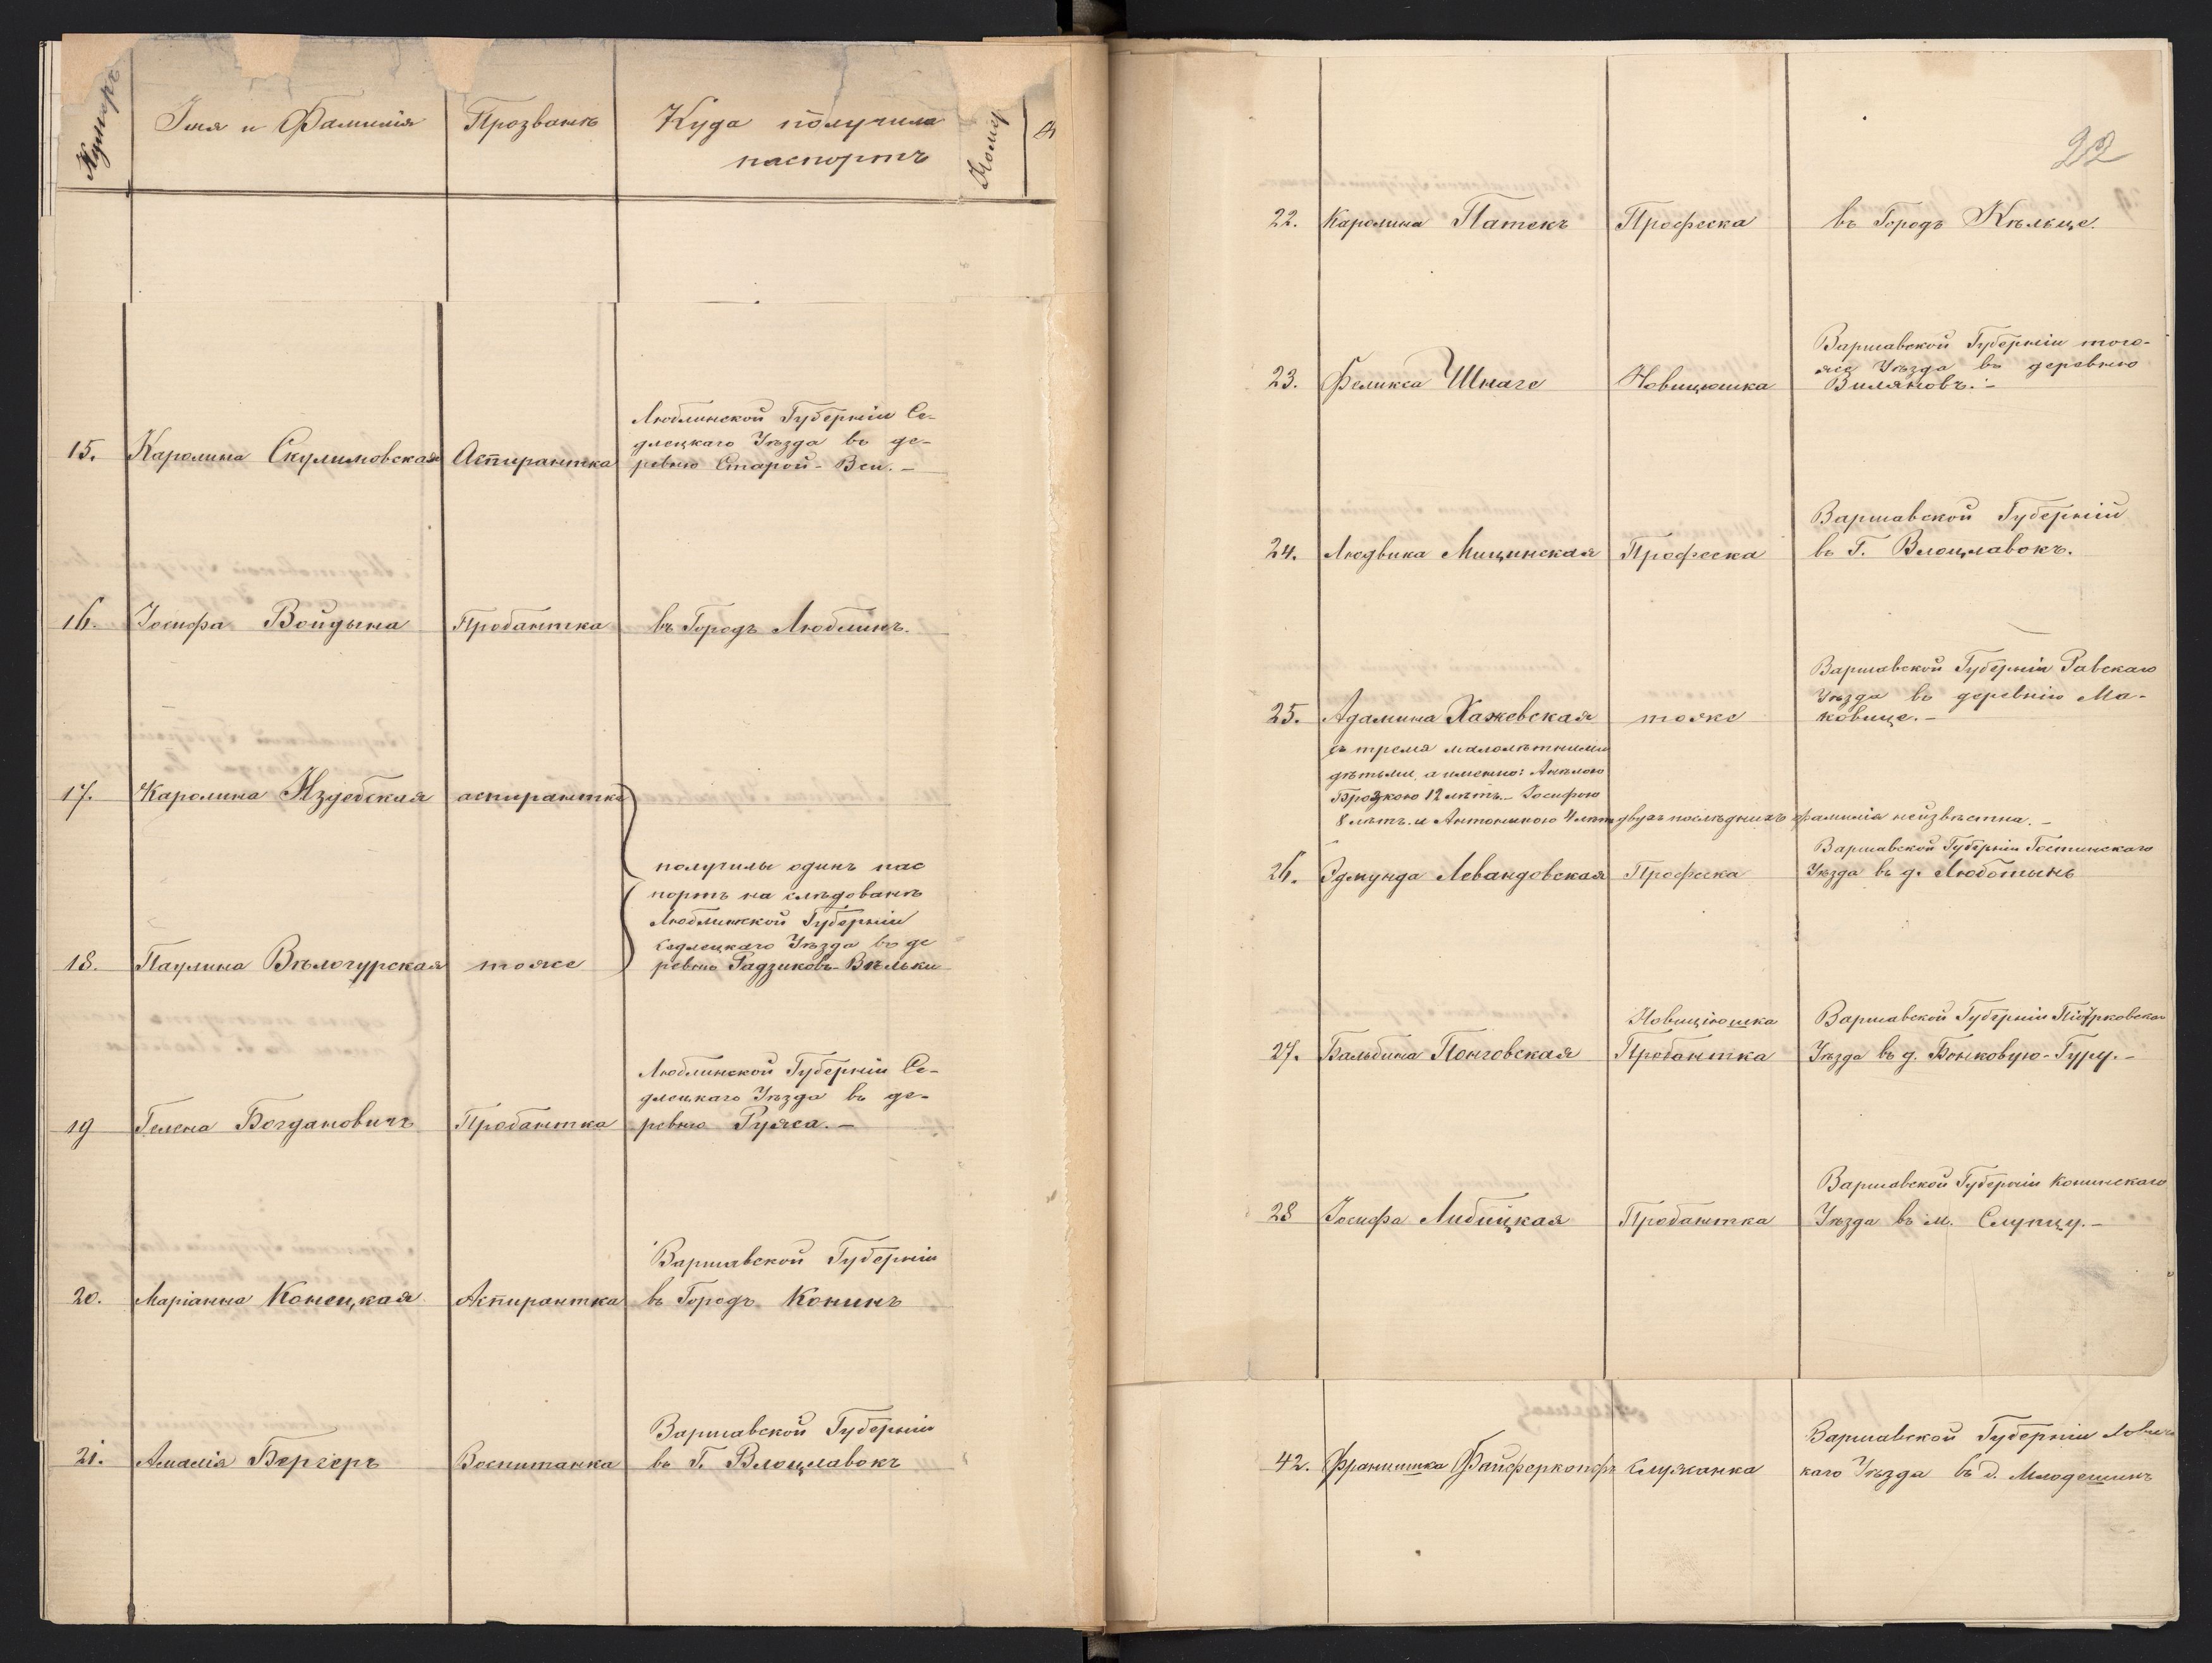 Нумеръ Имя и Фамилія Прозванiе Куда получила
паспортъ Номер
15. Каролина Скулимовская Аспирантка Люблинской Губерніи Се-
длецкаго Уѣзда въ де-
ревню Старой-Вси.-
16. Іосифа Войдына Пробантка въ Городъ Люблинъ.
17. Каролина Издебская аспирантка
получилы одинъ пас
портъ на слѣдованіе
Люблинской Губерніи
Седлецкаго Уѣзда въ де
18. Паулина Вѣлогурская тоже ревню Радзиковъ-Вѣльки
19 Гелена Богдановичъ Пробантка Люблинской Губерніи Се-
длецкаго Уѣзда въ де-
ревню Ружа.-
20. Маріанна Конецкая Аспирантка Варшавской Губерніи
въ Городъ Конинъ
21. Амалія Бергеръ Воспитанка Варшавской Губерніи
въ Г. Влоцлавокъ
22
22. Каролина Патекъ Професка въ Городъ Кѣльце.
23. Феликса Шнаге Новицюшка Варшавской Губерніи того-
же Уѣзда въ деревню
Виляновъ.-
24. Людвика Мицинская Професка Варшавской Губерніи
въ Г. Влоцлавокъ.
25. Адамина Хажевская тоже Варшавской Губерніи Равскаго
Уѣзда въ деревню Ма-
ковице.-
съ тремя малолѣтними
дѣтьми, а именно: Анѣлою
Брозкою 12 лѣтъ.- Іосифою
8 лѣтъ. и Антониною 4 лѣт двухъ послѣднихъ фамилія неизвѣстна.-
26. Эдмунда Левандовская Професка Варшавской Губерніи Гостинскаго
Уѣзда въ д. Люботынь
27. Бальбина Понговская Новиціюшка
Пробантка Варшавской Губерніи Піотрковскаго
Уѣзда въ д. Бонковую-Гуру.-
28 Іосифа Либицкая Пробантка Варшавской Губерніи Конинскаго
Уѣзда въ м. Слупцу.-
42. Францишка Файферкопфъ Служанка Варшавской Губерніи Лович
каго Уѣзда въ д. Млодешинъ